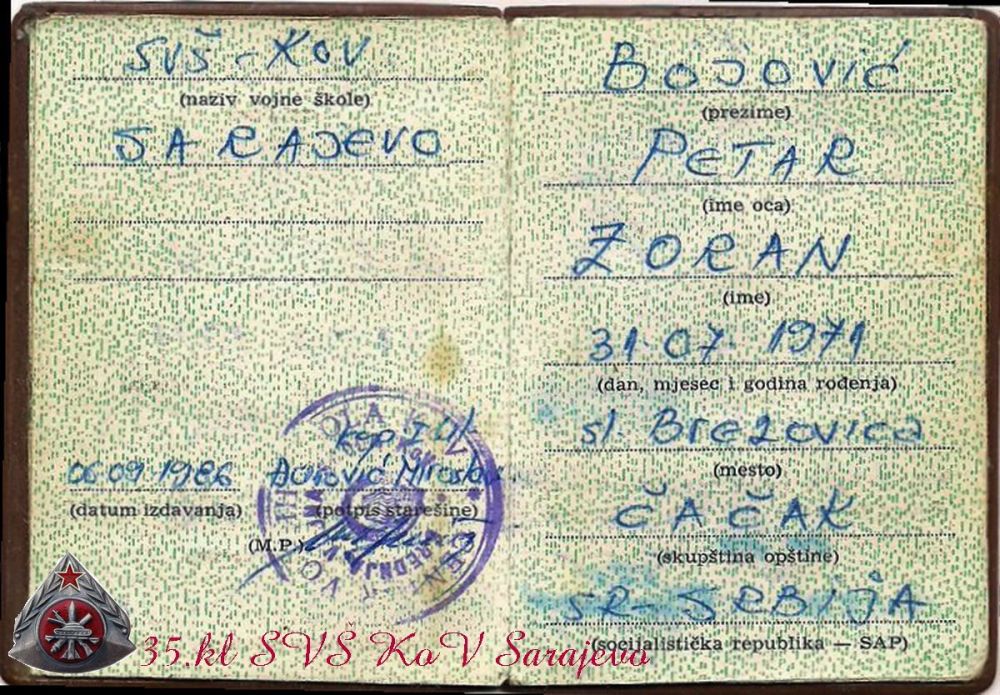 SVŠ-KOV
(naziv vojne škole)
SARAJEVO
06 09 1986
(datum izdavanja)
kap I kl
Miroslav
(potpis starešine)
(M.P.)
BOJOVIĆ
(prezime)
PETAR
(ime oca)
ZORAN
(ime)
31.07.1971
(dan, mjesec i godina rođenja)
sl. Brezovica
(mesto)
ČAČAK
(skupština opštine)
SR-SRBIJA
(socijalistička republika — SAP)
35.kl SVŠ KoV Sarajevo